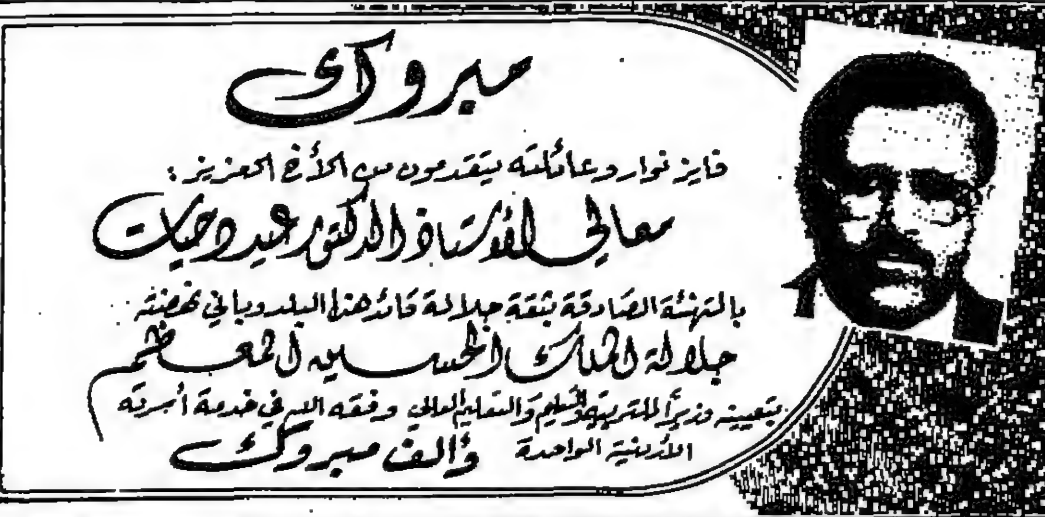 مبروك
فايز نوار وعائلته يتقدمون من الأخ العزيز :
معالي الأستاذ الدكتور عيد دحيات
بالتهنئة الصادقة بثقة جلالة قائد هذا البلد وباني نهضته
جلالة الملك الحسين المعظم
بتعيينه وزيراً للتربية والتعليم والتعليم العالي وفقه الله في خدمة أسرته
الأردنية الواحدة وألف مبروك